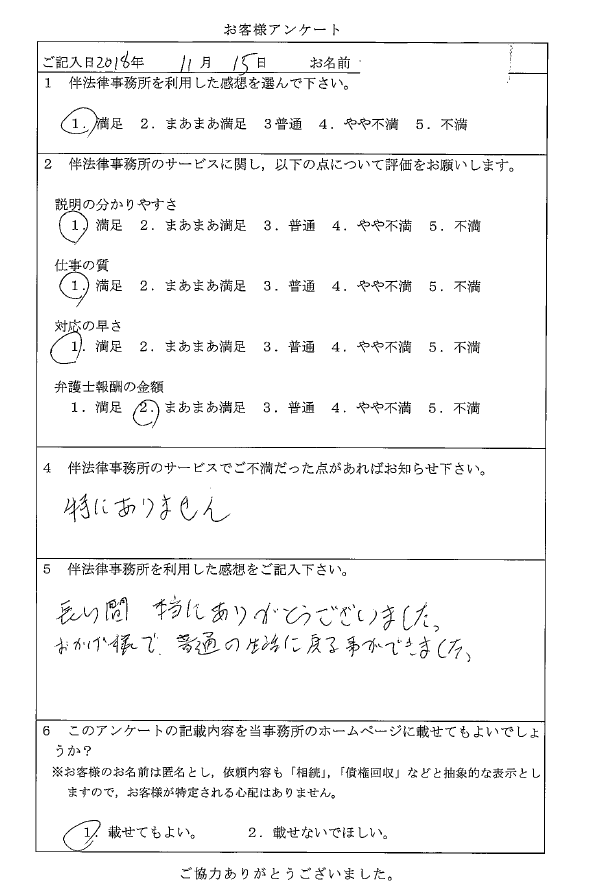 お客様アンケート
ご記入日2018年 11月 15日 お名前
1 伴法律事務所を利用した感想を選んで下さい。
1. 満足 2. まあまあ満足 3普通 4. やや不満 5. 不満
2 伴法律事務所のサービスに関し，以下の点について評価をお願いします。
説明の分かりやすさ
1. 満足 2. まあまあ満足 3. 普通 4. やや不満 5. 不満
仕事の質
1. 満足 2. まあまあ満足 3. 普通 4. やや不満 5. 不満
対応の早さ
1. 満足 2. まあまあ満足 3. 普通 4. やや不満 5. 不満
弁護士報酬の金額
1. 満足 2. まあまあ満足 3. 普通 4. やや不満 5. 不満
4 伴法律事務所のサービスでご不満だった点があればお知らせ下さい。
特にありません
5 伴法律事務所を利用した感想をご記入下さい。
長い間 本当にありがとうございました。
おかげ様で、普通の生活に戻る事ができました。
6 このアンケートの記載内容を当事務所のホームページに載せてもよいでしょ
うか？
※お客様のお名前は匿名とし，依頼内容も「相続」，「債権回収」などと抽象的な表示とし
ますので，お客様が特定される心配はありません。
1. 載せてもよい。 2. 載せないでほしい。
ご協力ありがとうございました。